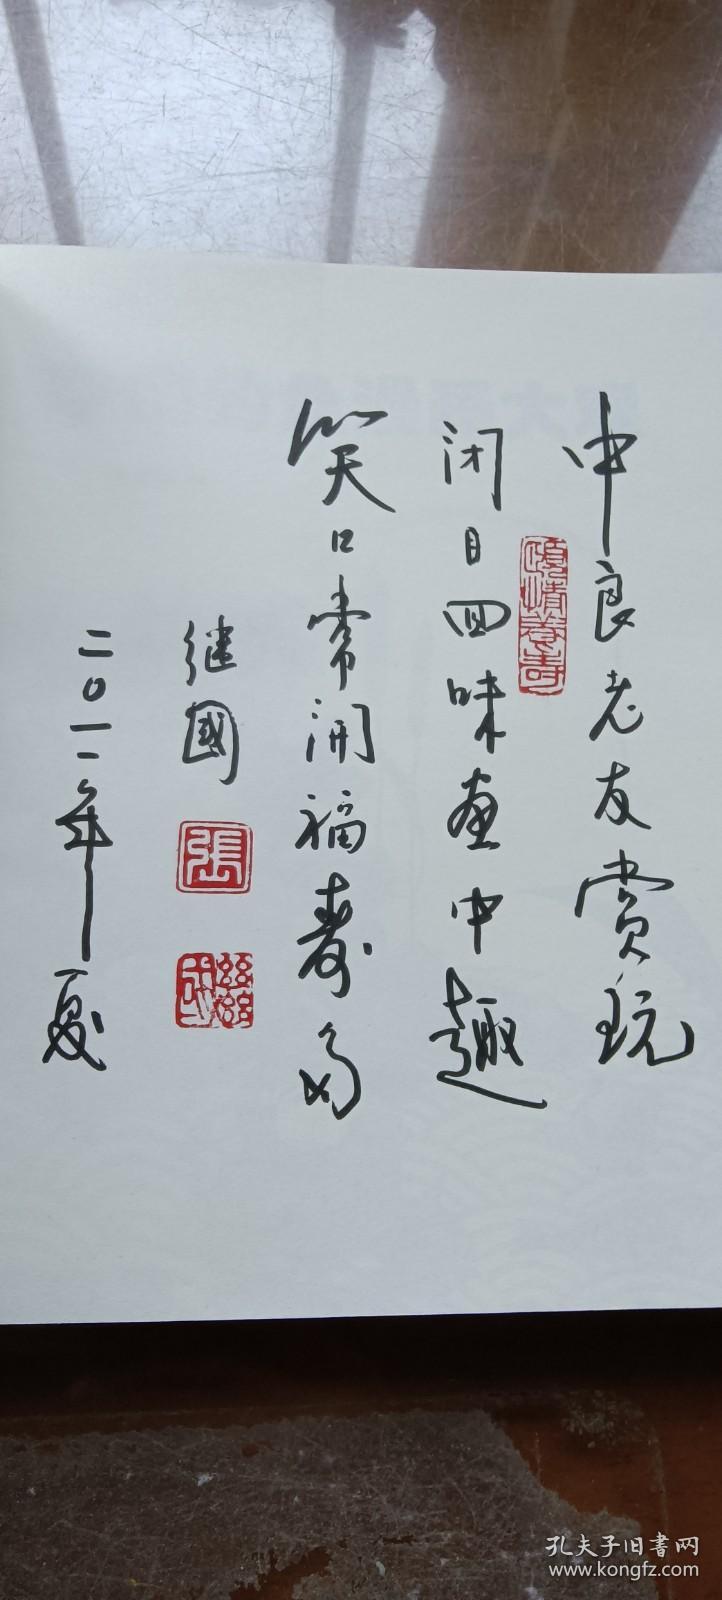 中良老友赏玩
颐情養壽
闭目回味画中趣
笑口常开福寿多
继國
張
二〇一一年夏
孔夫子旧書网
www.kongfz.com